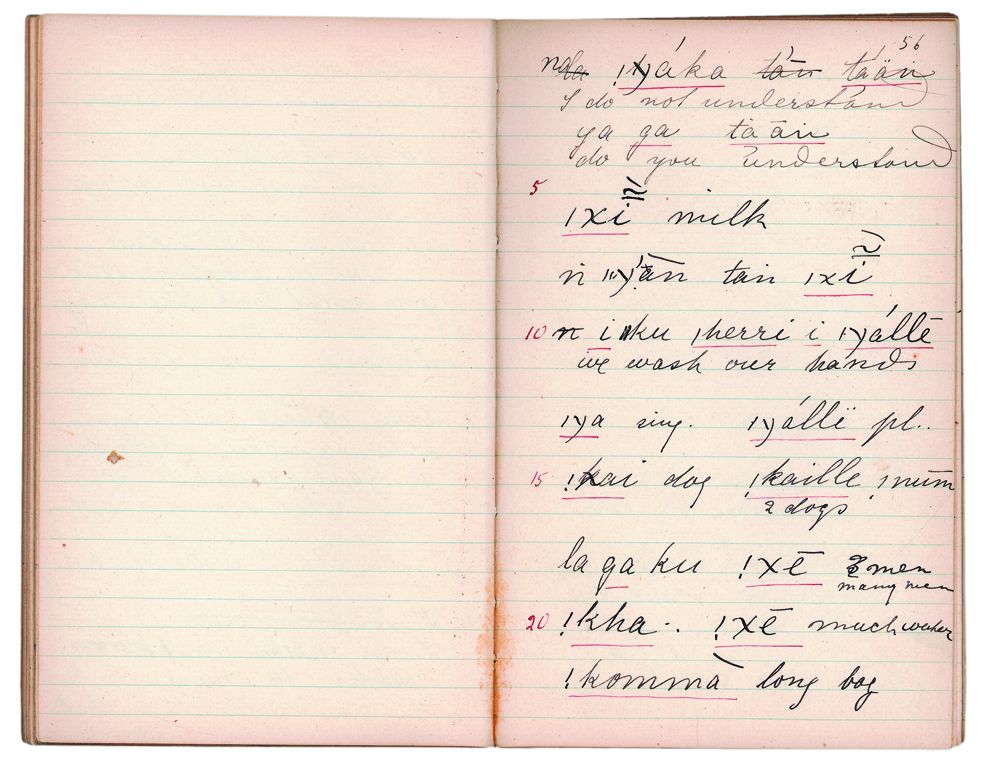 56
!ɣáka tăn táän
I do not understand
ya ga taän
do you understand
5
ǀχi milk
n tan ǀχi
10 n i ku ǀherri i ǀɣállē
we wash our hands
ǀɣa sing. ǀɣállï pl..
15 !kai dog !kaille !num
2 dogs
la ga ku !χē 3 men
many men
20 !kha .. !χē much water
!komma long bag